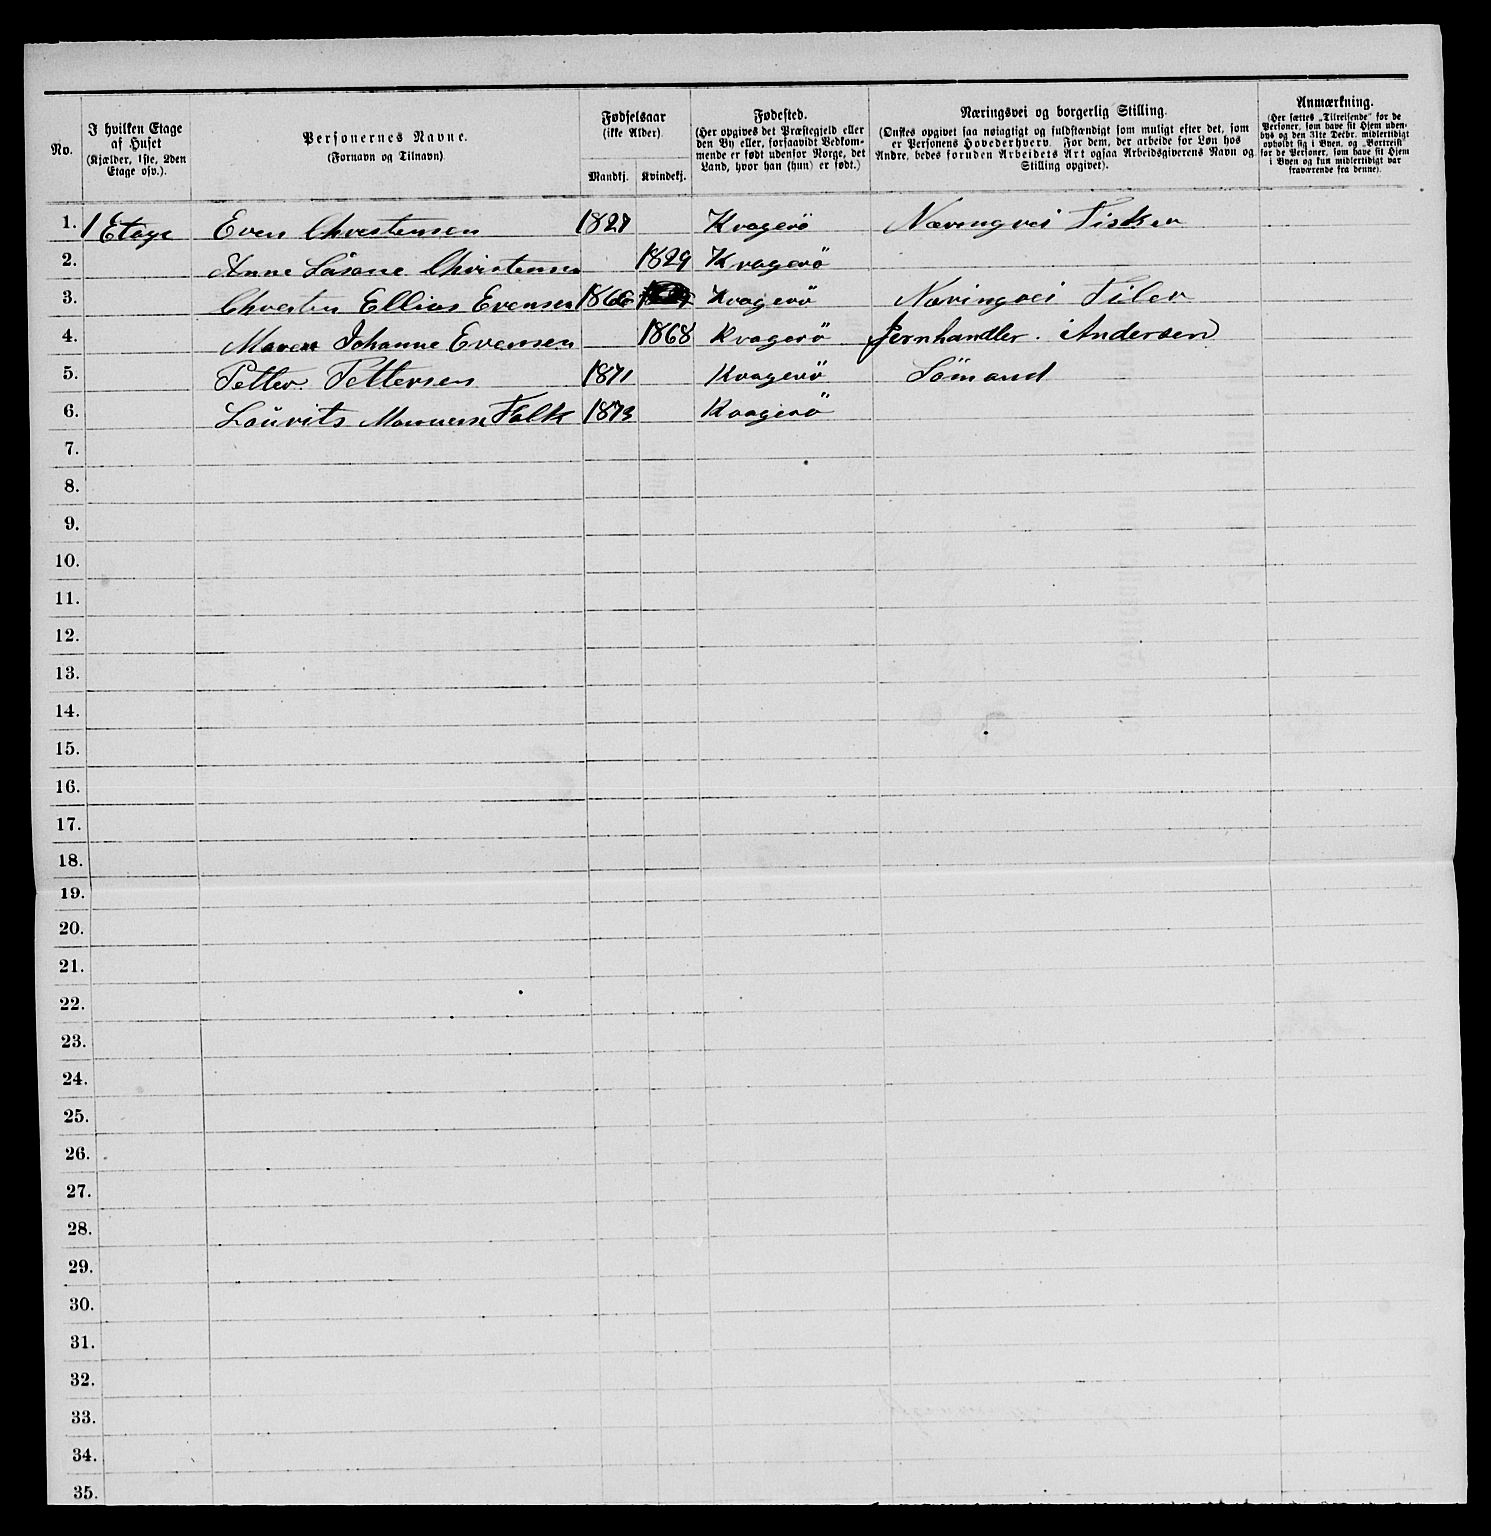 No.
I hvilken Etage
af Huset
(Kjælder, 1ste, 2den
Etage osv.).
Personernes Navne.
(Fornavn og Tilnavn)
Fødselsaar
(ikke Alder)
Mandkj. Kvindekj.
Fødested.
(Her opgives det Præstegjeld eller
den By eller, forsaavidt Vedkom-
mende er født udenfor Norge, det
Land, hvor han (hun) er født.)
Næringsvei og borgerlig Stilling.
(Ønskes opgivet saa nøiagtigt og fuldstændigt som muligt efter det, som
er Personens Hovederhverv. For dem, der arbeide for Løn hos
Andre, bedes foruden Arbeidets Art ogsaa Arbeidsgiverens Navn og
Stilling opgivet).
Anmærkning.
(Her sættes „Tilreisende" for de
Personer, som have sit Hjem uden-
bys og den 31te Decbr. midlertidigt
opholdt sig i Byen, og „Bortreist"
for de Personer, som have sit Hjem
i Byen og kun midlertidigt var
fraværende fra denne).
1. 1 Etage Even Christensen 1827 Kragerö Næringvei Fisker
2. Anne Christensen 1829 Kragerö
3. Christen Ellias Evensen 1860 Kragerö Næringvei Filer
4. Maren Johanne Evensen 1868 Kragerö Jernhandler. Andersen
5. Petter Pettersen 1871 Kragerö Sömand
6. Laurits Falk 1873 Kragerö
7.
8.
9.
10.
11.
12.
13.
14.
15.
16.
17.
18.
19.
20.
21.
22.
23.
24.
25.
26.
27.
28.
29.
30.
31.
32.
33.
34.
35.